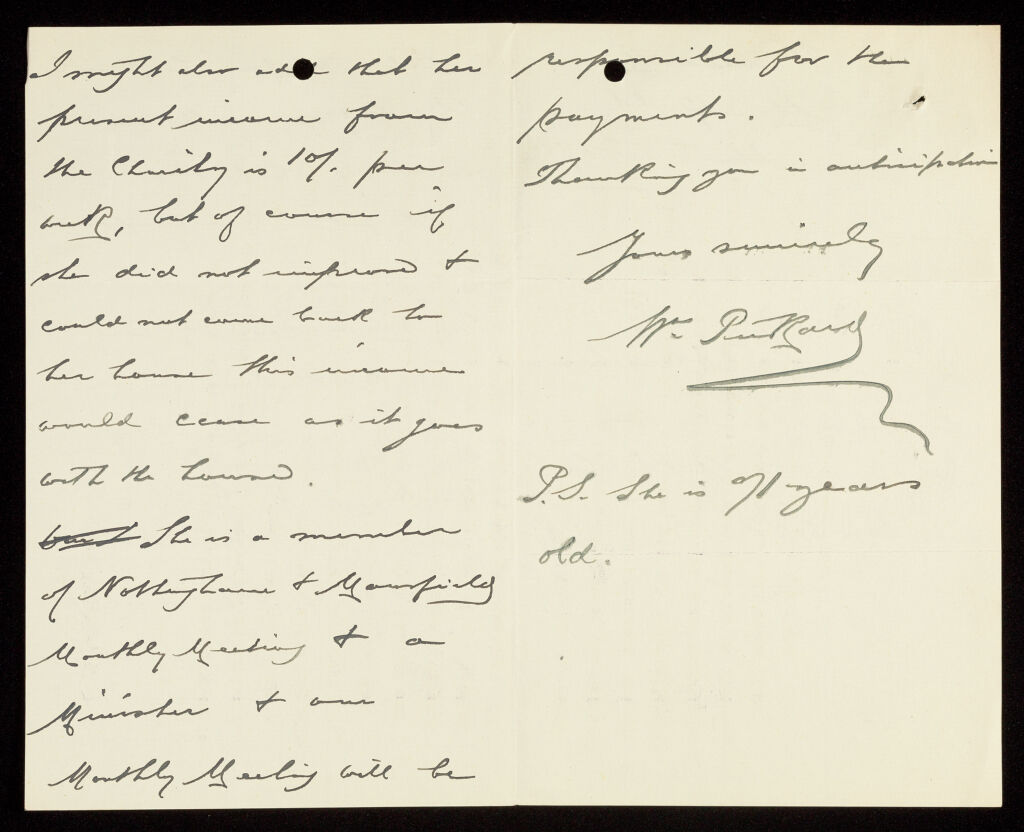 I might also add that her
present income from
the Charity is 10/. per
week, but of course if
she did not improve &
could not come back to
her house this income
would cease as it goes
with the house.
but She is a member
of Nottingham & Mansfield
Monthly Meeting & a
Minister & our
Monthly Meeting will be
responsible for the
payments.
Thanking you in anticipation
Yours sincerely
Wm Pickard
P.S. She is 71 years
old.